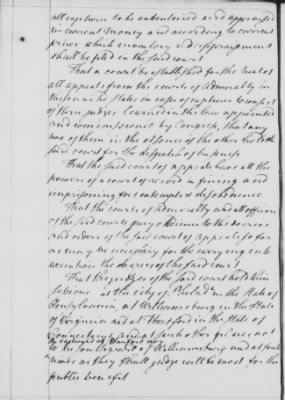 all captures to be inventoried and appraised
in current money and according to current
prices which inventory and appraisement
shall be filed in the said court
That a court be established for the trial of
all appeals from the courts of Admiralty in
these united States in cases of capture to consist
of three judges learned in the law appointed
and commissioned by Congress, that any
two of them in the absence of the other hold the
said court for the dispatch of business
That the said court of appeals have all the
powers of a court of record in fining and
imprisoning for contempt & disobedience
That the courts of Admiralty and all officers
of the said courts pay obedience to the decrees
and orders of the said court of appeals so far
as may be necessary for the carrying into
execution the decrees of the said court
That the judges of the said court hold their
sessions at the city of Philada in the State of
Pensylvania, at Williamsburg in the State
of Virginia and at Hartford in the State of
Connecticut, and at such other places not
to the eastward of Hartford nor
to the southward of Williamsburg and at such
times as they shall judge will be most for the
public benefit